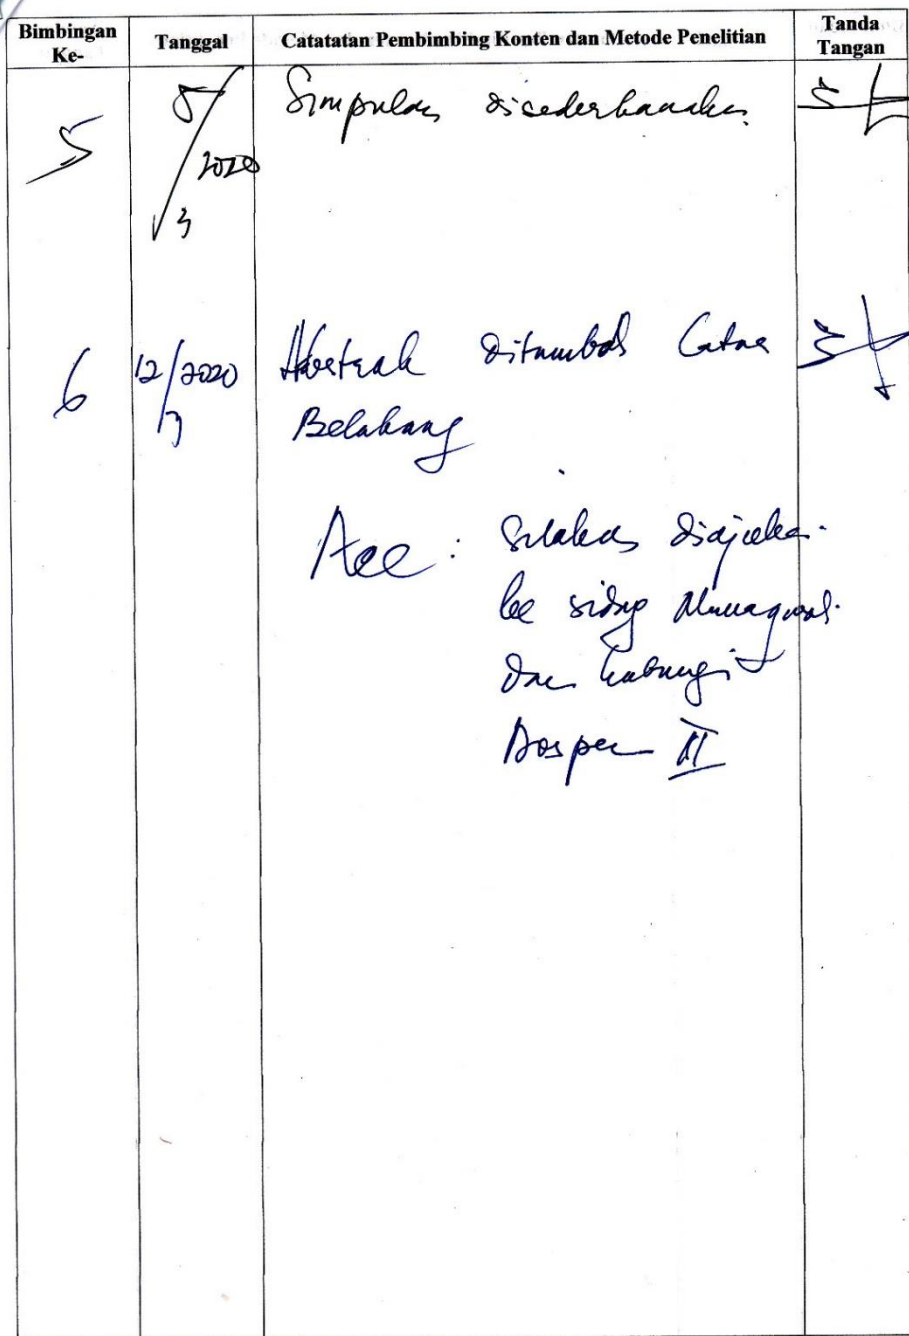 Bimbingan Ke- Tanggal Catatatan Pembimbing Konten dan Metode Penelitian Tanda Tangan
5 5/3 2020 Simpulan disederhanakan.
6 12/3 2020 Abstrak ditambah Latar
Belakang
Acc : Silakan diajukan
ke sidang Munaqosah
dan hubungi
Dospem II